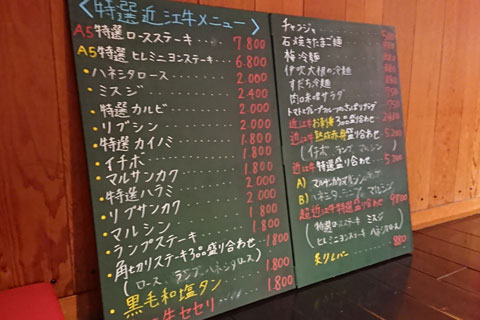 〈特選近江牛メニュー〉
A5特選ロースステーキ・・・・7.800
A5特選ヒレミニヨンステーキ・・6.800
・ハネシタロース・・・・2.000
・ミスジ・・・・2.400
・特選カルビ・・・・2.000
・リブシン・・・・2.000
・特選カイノミ・・・・1.800
・イチボ・・・・1.800
・マルサンカク・・・・2.000
・特選ハラミ・・・・2.000
・リブサンカク・・・・1.800
・マルシン・・・・1.800
・ランプステーキ・・・・1.800
・角切りステーキ3品盛り合わせ・・1.800
(ロース、ランプ、ハネシタロース)
・黒毛和塩タン・・・・1.800
チャンジャ
石焼きたまご麺
梅冷麺
伊吹大根の冷麺
すだち冷麺
肉味噌サラダ・・・750
近江牛お刺身3品盛り合わせ
近江牛熟成赤身盛り合わせ
(イチボ、ランプ、マルシン)
近江牛特選盛り合わせ・・5.200
A)
B)ハネシタ
超近江牛特選盛り合わせ 9800
(特選ロースステーキ ミスジ
ヒレミニヨンステーキ ハネシタロース)
炙りレバー・・・・880